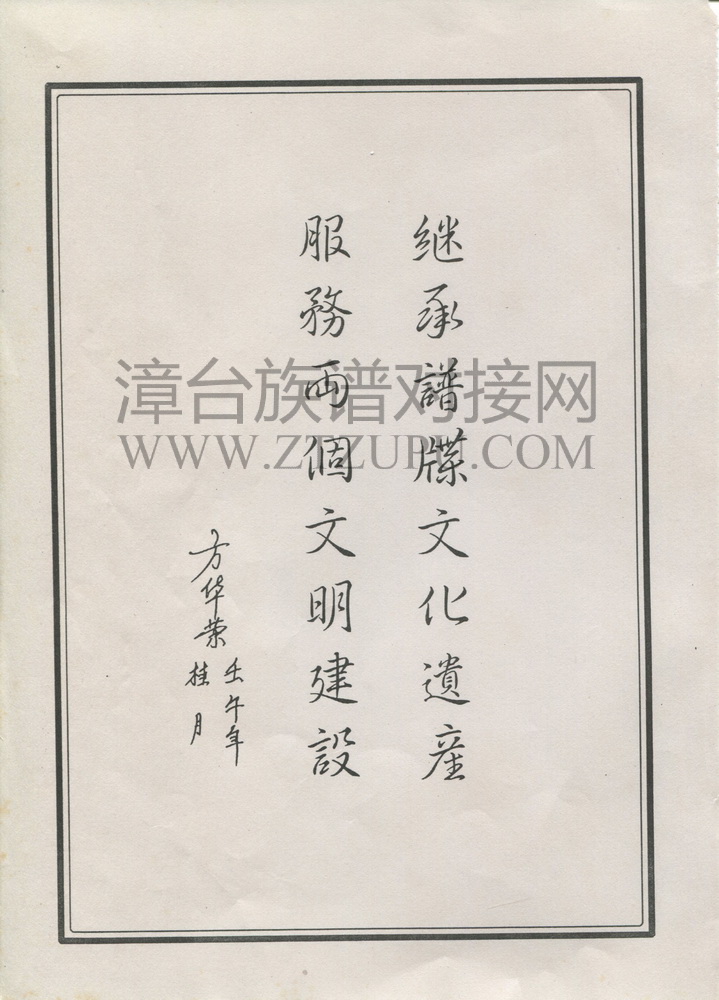 继承譜牒文化遺産
服務両個文明建設
方华荣
壬午年
桂月
漳台族谱对接网
WWW.ZTZUPU.NET